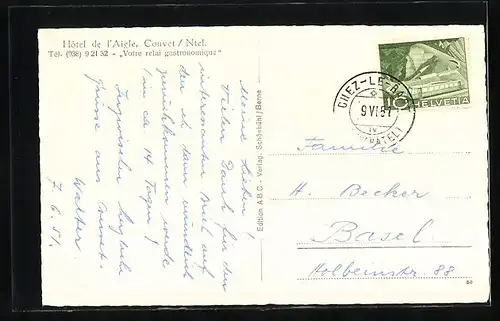 Hôtel de l'Aigle, Couvet / Ntel.
Tél. (038) 9 21 32 - „Votre relai gastronomique"
Meine Lieben!
Vielen Dank für den
interessanten Brief auf
den ich dann mündlich
zurückkommen werde
(in ca 14 Tagen)
Inzwischen herzliche
Grüsse aus Couvet.
Walter.
7.6.51.
Edition A B C - Verlag, Schönbühl/Berne
CHEZ-LE-BART
9 VI 51
(NEUCHÂTEL)
10 HELVETIA
Familie
H. Becker
Basel
Holbeinstr. 88